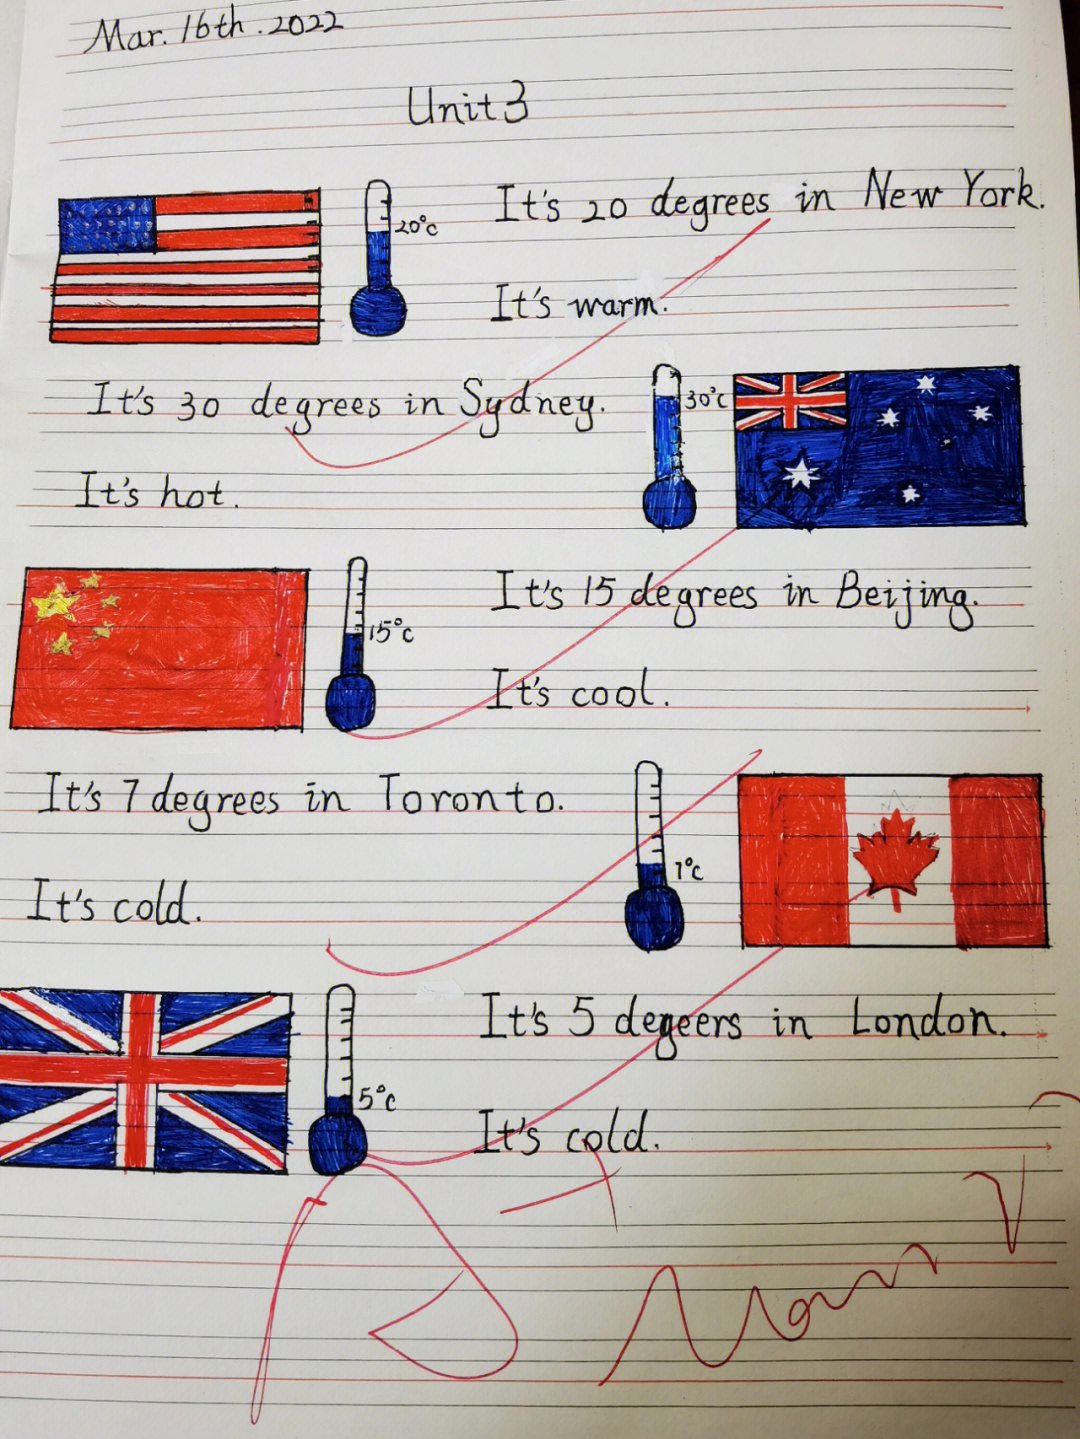 Mar. 16th. 2022
Unit 3
It's 20 degrees in New York.
20°c
It's warm.
It's 30 degrees in Sydney.
30°c
It's hot.
It's 15 degrees in Beijing.
15°c
It's cool.
It's 7 degrees in Toronto.
7°c
It's cold.
It's 5 degeers in London.
5°c
It's cold.